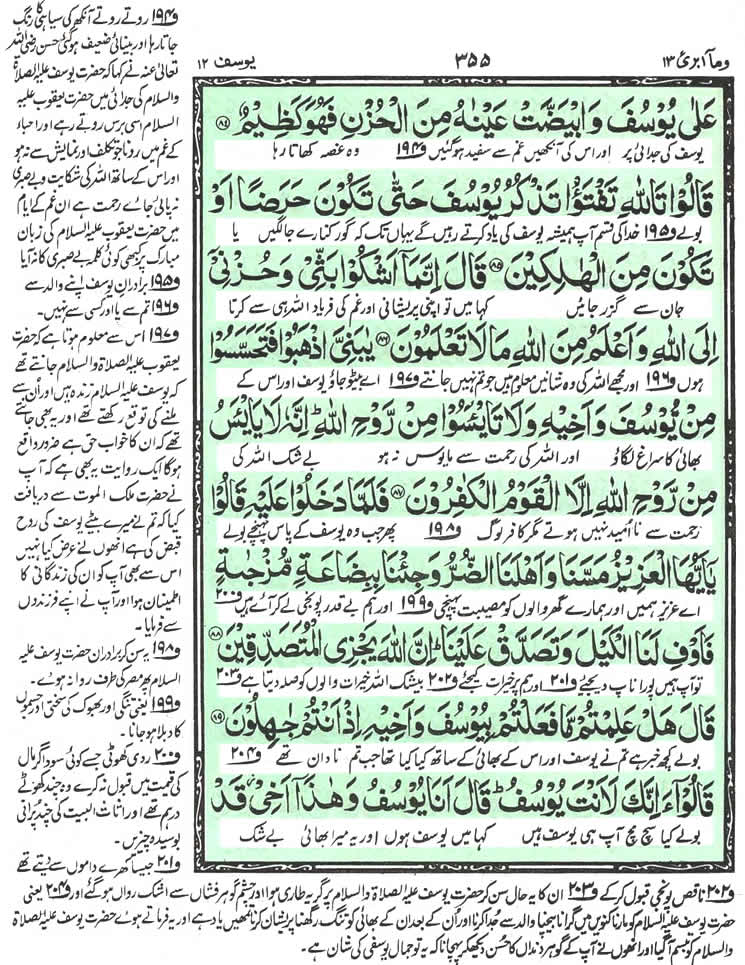 وما ابرئ ١٣
٣٥٥
یوسف ١٢
عَلٰی یُوْسُفَ وَابْیَضَّتْ عَیْنٰهُ مِنَ الْحُزْنِ فَهُوَ كَظِیْمٌ ﴿۸۴﴾
یوسف کی جدائی پر اور اس کی آنکھیں غم سے سفید ہوگئیں و۱۹۴ وہ غصہ کھاتا رہا
قَالُوْا تَاللّٰهِ تَفْتَؤُا تَذْكُرُ یُوْسُفَ حَتّٰی تَكُوْنَ حَرَضًا اَوْ
بولے و۱۹۵ خدا کی قسم آپ ہمیشہ یوسف کی یاد کرتے رہیں گے یہاں تک کہ گور کنارے جا لگیں یا
تَكُوْنَ مِنَ الْهٰلِكِیْنَ ﴿۸۵﴾ قَالَ اِنَّمَاۤ اَشْكُوْا بَثِّیْ وَحُزْنِیْۤ
جان سے گزر جائیں کہا میں تو اپنی پریشانی اور غم کی فریاد اللہ ہی سے کرتا
اِلَی اللّٰهِ وَاَعْلَمُ مِنَ اللّٰهِ مَا لَا تَعْلَمُوْنَ ﴿۸۶﴾ یٰبَنِیَّ اذْهَبُوْا فَتَحَسَّسُوْا
ہوں و۱۹۶ اور مجھے اللہ کی وہ شانیں معلوم ہیں جو تم نہیں جانتے و۱۹۷ اے بیٹو جاؤ یوسف اور اس کے
مِنْ یُّوْسُفَ وَاَخِیْهِ وَلَا تَایْـَٔسُوْا مِنْ رَّوْحِ اللّٰهِ ؕ اِنَّهٗ لَا یَایْـَٔسُ
بھائی کا سراغ لگاؤ اور اللہ کی رحمت سے مایوس نہ ہو بے شک اللہ کی
مِنْ رَّوْحِ اللّٰهِ اِلَّا الْقَوْمُ الْكٰفِرُوْنَ ﴿۸۷﴾ فَلَمَّا دَخَلُوْا عَلَیْهِ قَالُوْا
رحمت سے ناامید نہیں ہوتے مگر کافر لوگ و۱۹۸ پھر جب وہ یوسف کے پاس پہنچے بولے
یٰۤاَیُّهَا الْعَزِیْزُ مَسَّنَا وَاَهْلَنَا الضُّرُّ وَجِئْنَا بِبِضَاعَةٍ مُّزْجٰىةٍ
اے عزیز ہمیں اور ہمارے گھر والوں کو مصیبت پہنچی و۱۹۹ اور ہم بے قدر پونجی لے کر آئے ہیں و۲۰۰
فَاَوْفِ لَنَا الْكَیْلَ وَتَصَدَّقْ عَلَیْنَا ؕ اِنَّ اللّٰهَ یَجْزِی الْمُتَصَدِّقِیْنَ ﴿۸۸﴾
تو آپ ہمیں پورا ناپ دیجئے و۲۰۱ اور ہم پر خیرات کیجئے و۲۰۲ بیشک اللہ خیرات والوں کو صلہ دیتا ہے و۲۰۳
قَالَ هَلْ عَلِمْتُمْ مَّا فَعَلْتُمْ بِیُوْسُفَ وَاَخِیْهِ اِذْ اَنْتُمْ جٰهِلُوْنَ ﴿۸۹﴾
بولے کچھ خبر ہے تم نے یوسف اور اس کے بھائی کے ساتھ کیا کیا تھا جب تم نادان تھے و۲۰۴
قَالُوْۤا ءَاِنَّكَ لَاَنْتَ یُوْسُفُ ؕ قَالَ اَنَا یُوْسُفُ وَهٰذَاۤ اَخِیْ ؗ قَدْ
بولے کیا سچ مچ آپ ہی یوسف ہیں کہا میں یوسف ہوں اور یہ میرا بھائی بے شک
و۱۹۴ روتے روتے آنکھ کی سیاہی کا رنگ
جاتا رہا اور بینائی ضعیف ہوگئی حسن رضی اللہ
تعالیٰ عنہ نے کہا کہ حضرت یوسف علیہ الصلاۃ
والسلام کی جدائی میں حضرت یعقوب علیہ
السلام اسی برس روتے رہے اور احباء
کے غم میں رونا جو تکلف اور نمایش سے نہ ہو
اور اس کے ساتھ اللہ کی شکایت و بے صبری
نہ پائی جائے رحمت ہے ان غم کے ایام
میں حضرت یعقوب علیہ السلام کی زبان
مبارک پر کبھی کوئی کلمہ بے صبری کا نہ آیا
و۱۹۵ برادران یوسف اپنے والد سے
و۱۹۶ تم سے یا اور کسی سے نہیں۔
و۱۹۷ اس سے معلوم ہوتا ہے کہ حضرت
یعقوب علیہ الصلاۃ والسلام جانتے تھے
کہ یوسف علیہ السلام زندہ ہیں اور ان سے
ملنے کی توقع رکھتے تھے اور یہ بھی جانتے
تھے کہ ان کا خواب حق ہے ضرور واقع
ہوگا ایک روایت یہ بھی ہے کہ آپ
نے حضرت ملک الموت سے دریافت
کیا کہ تم نے میرے بیٹے یوسف کی روح
قبض کی ہے انھوں نے عرض کیا نہیں
اس سے بھی آپ کو ان کی زندگانی کا
اطمینان ہوا اور آپ نے اپنے فرزندوں
سے فرمایا۔
و۱۹۸ یہ سن کر برادران حضرت یوسف علیہ
السلام پھر مصر کی طرف روانہ ہوئے۔
و۱۹۹ یعنی تنگی اور بھوک کی سختی اور جسموں
کا دبلا ہوجانا۔
و۲۰۰ ردی کھوٹی جسے کوئی سوداگر مال
کی قیمت میں قبول نہ کرے وہ چند کھوٹے
درہم تھے اور اثاث البیت کی چند پرانی
بوسیدہ چیزیں۔
و۲۰۱ جیسا کھرے داموں سے دیتے تھے
و۲۰۲ یہ ناقص پونجی قبول کرکے و۲۰۳ ان کا یہ حال سن کر حضرت یوسف علیہ الصلاۃ والسلام پر گریہ طاری ہوا اور چشم گوہر فشاں سے اشک رواں ہوگئے اور و۲۰۴ یعنی
حضرت یوسف علیہ السلام کو مارنا کنویں میں گرانا بیچنا والد سے جدا کرنا اور ان کے بعد ان کے بھائی کو تنگ رکھنا پریشان کرنا تمھیں یاد ہے اور یہ فرماتے ہوئے حضرت یوسف علیہ الصلاۃ
والسلام کو تبسم آگیا اور انھوں نے آپ کے گوہر دنداں کا حسن دیکھ کر پہچانا کہ یہ تو جمال یوسفی کی شان ہے۔